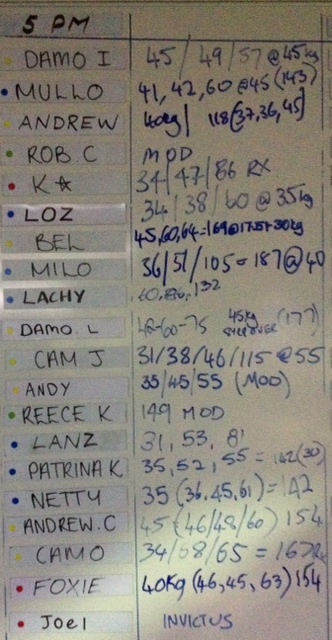 5 PM
DAMO I 45 / 49 / 57 @ 45kg
MULLO 41, 42, 60 @45 (143)
ANDREW 40kg | 118 (37, 36, 45)
ROB.C MOD
K☆ 34 / 47 / 86 RX
LOZ 34 / 38 / 60 @ 35kg
BEL 45, 60, 64 = 169
MILO 36 / 51 / 105 = 187 @ 40
LACHY 60, 80, 132
DAMO. L 42-60-75 45kg (177)
CAM J 31/38/46/115 @55
ANDY 35/45/55 (MOD)
REECE K 149 MOD
LANZ 31, 53, 81
PATRINA K 35, 52, 55 = 142 (30)
NETTY 35 (36, 45, 61) = 142
ANDREW.C 45 (46/48/60) 154
CAMO 34/68/65 = 167
FOXIE 40Kg (46, 45, 63) 154
Joel INVICTUS